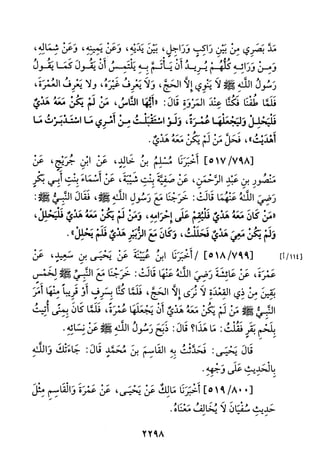 مَدَّ بَصَرِي مِنْ بَيْنِ رَاكِبٍ وَرَاجِلٍ، بَيْنَ يَدَيْهِ، وَعَنْ يَمِينِهِ، وَعَنْ شِمَالِهِ،
وَمِنْ وَرَائِهِ كُلُّهُمْ يُرِيدُ أَنْ يَأْتَمَّ بِهِ يَلْتَمِسُ أَنْ يَقُولَ كَمَا يَقُولُ
رَسُولُ اللَّهِ ﷺ لَا يَنْوِي إِلَّا الحَجَّ، وَلَا يَعْرِفُ غَيْرَهُ، ولا يَعْرِفُ العُمْرَةَ،
فَلَمَّا طُفْنَا فَكُنَّا عِنْدَ المَرْوَةِ قَالَ: «أَيُّهَا النَّاسُ، مَنْ لَمْ يَكُنْ مَعَهُ هَدْيٌ
فَلْيَحْلِلْ وَلْيَجْعَلْهَا عُمْرَةً، وَلَوِ اسْتَقْبَلْتُ مِنْ أَمْرِي مَا اسْتَدْبَرْتُ مَا
أَهْدَيْتُ»، فَحَلَّ مَنْ لَمْ يَكُنْ مَعَهُ هَدْيٌ.
[٥١٧/٧٩٨] أَخْبَرَنَا مُسْلِمُ بنُ خَالِدٍ، عَنْ ابْنِ جُرَيْجٍ، عَنْ
مَنْصُورِ بنِ عَبْدِ الرَّحْمَنِ، عَنْ صَفِيَّةَ بِنْتِ شَيْبَةَ، عَنْ أَسْمَاءَ بِنْتِ أَبِي بَكْرٍ
رَضِيَ اللَّهُ عَنْهُمَا قَالَتْ: خَرَجْنَا مَعَ رَسُولِ اللَّهِ ﷺ، فَقَالَ النَّبِيُّ ﷺ:
«مَنْ كَانَ مَعَهُ هَدْيٌ فَلْيُقِمْ عَلَى إِحْرَامِهِ، وَمَنْ لَمْ يَكُنْ مَعَهُ هَدْيٌ فَلْيَحْلِلْ،
وَلَمْ يَكُنْ مَعِيَ هَدْيٌ فَحَلَلْتُ، وَكَانَ مَعَ الزُّبَيْرِ هَدْيٌ فَلَمْ يَحْلِلْ».
[١١٤/أ] [٥١٨/٧٩٩] أَخْبَرَنَا / ابْنُ عُيَيْنَةَ عَنْ يَحْيَى بنِ سَعِيدٍ، عَنْ
عَمْرَةَ، عَنْ عَائِشَةَ رَضِيَ اللَّهُ عَنْهَا قَالَتْ: خَرَجْنَا مَعَ النَّبِيِّ ﷺ لِخَمْسٍ
بَقِينَ مِنْ ذِي القِعْدَةِ لَا نُرَى إِلَّا الحَجَّ، فَلَمَّا كُنَّا بِسَرِفٍ أَوْ قَرِيبًا مِنْهَا أَمَرَ
النَّبِيُّ ﷺ مَنْ لَمْ يَكُنْ مَعَهُ هَدْيٌ أَنْ يَجْعَلَهَا عُمْرَةً، فَلَمَّا كَانَ بِمِنًى أُتِيتُ
بِلَحْمِ بَقَرٍ فَقُلْتُ: مَا هَذَا؟ قَالَ: ذَبَحَ رَسُولُ اللَّهِ ﷺ عَنْ نِسَائِهِ.
قَالَ يَحْيَى: فَحَدَّثْتُ بِهِ القَاسِمَ بنَ مُحَمَّدٍ قَالَ: جَاءَتْكَ وَاللَّهِ
بِالْحَدِيثِ عَلَى وَجْهِهِ.
[٥١٩/٨٠٠] أَخْبَرَنَا مَالِكٌ عَنْ يَحْيَى، عَنْ عَمْرَةَ وَالْقَاسِمِ مِثْلَ
حَدِيثِ سُفْيَانَ لَا يُخَالِفُ مَعْنَاهُ.
٢٢٩٨